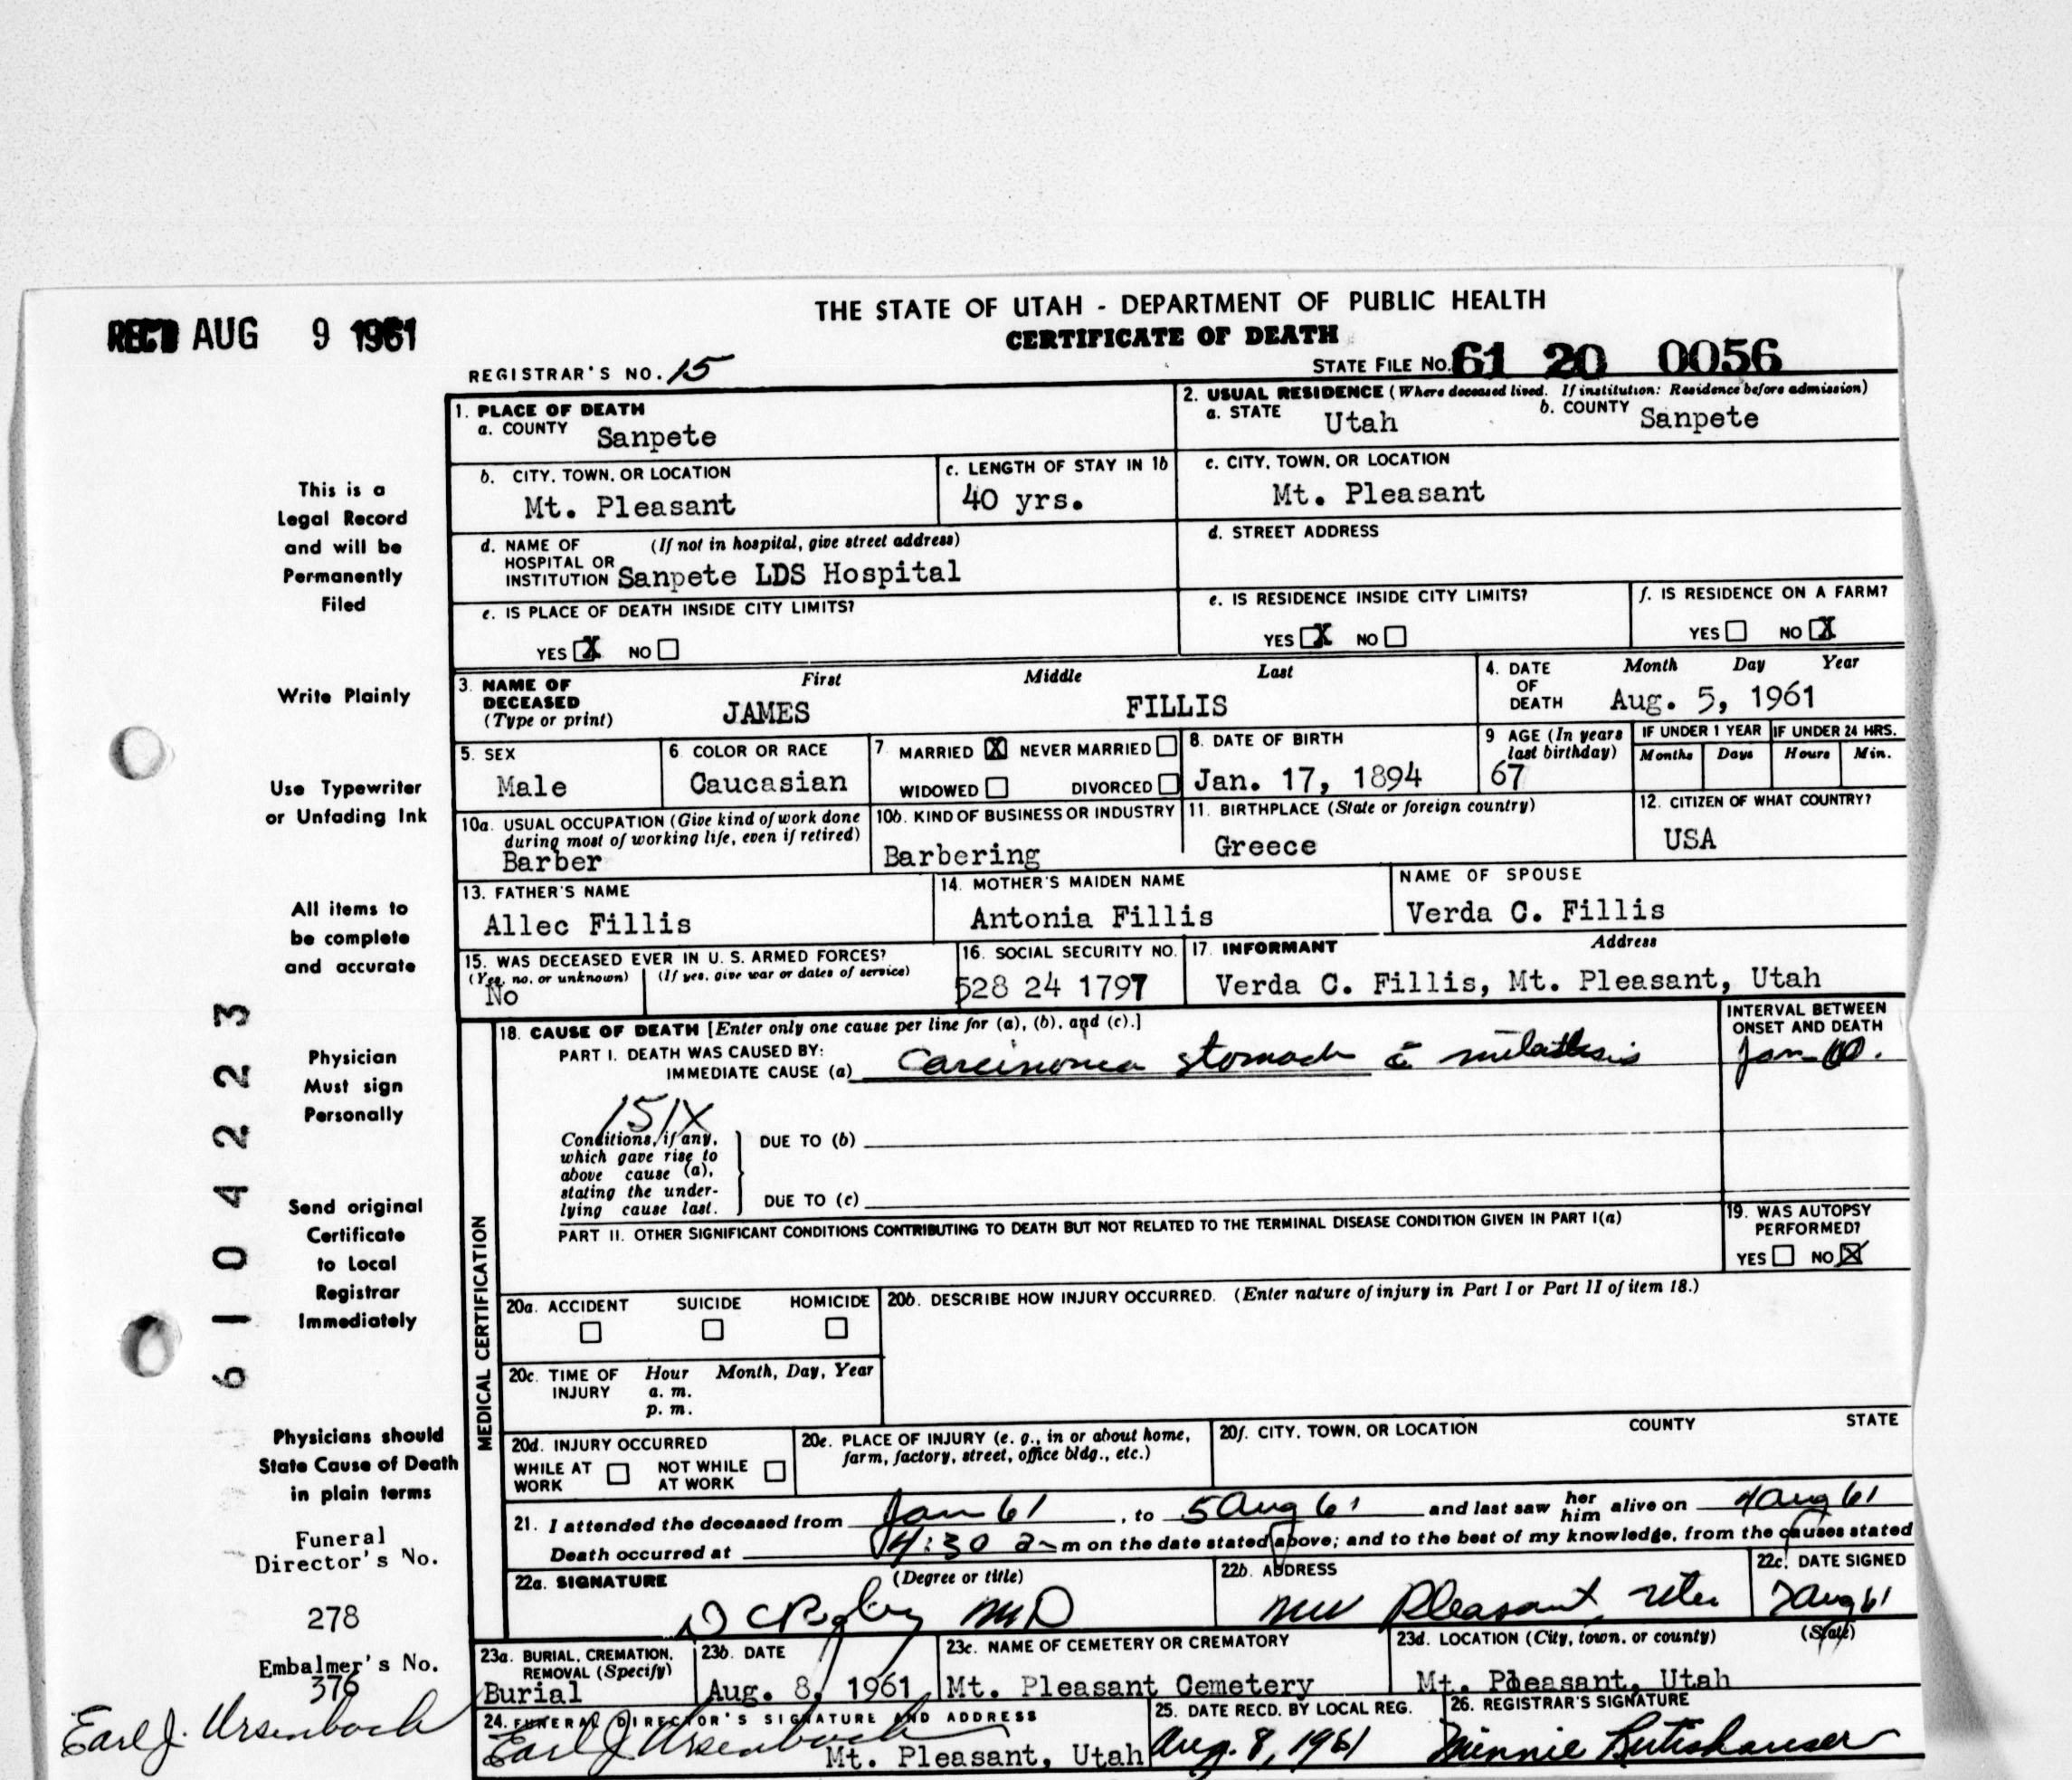 THE STATE OF UTAH - DEPARTMENT OF PUBLIC HEALTH
CERTIFICATE OF DEATH
REC'D AUG 9 1961
REGISTRAR'S NO. 15
STATE FILE NO. 61 20 0056
1. PLACE OF DEATH
a. COUNTY Sanpete
2. USUAL RESIDENCE (Where deceased lived. If institution: Residence before admission)
a. STATE Utah b. COUNTY Sanpete
b. CITY, TOWN, OR LOCATION
Mt. Pleasant
c. LENGTH OF STAY IN 1b
40 yrs.
c. CITY, TOWN, OR LOCATION
Mt. Pleasant
d. NAME OF (If not in hospital, give street address)
HOSPITAL OR
INSTITUTION Sanpete LDS Hospital
d. STREET ADDRESS
e. IS PLACE OF DEATH INSIDE CITY LIMITS?
YES X NO
e. IS RESIDENCE INSIDE CITY LIMITS?
YES X NO
f. IS RESIDENCE ON A FARM?
YES NO X
3. NAME OF DECEASED (Type or print)
First Middle Last
JAMES FILLIS
4. DATE OF DEATH
Month Day Year
Aug. 5, 1961
5. SEX
Male
6. COLOR OR RACE
Caucasian
7. MARRIED X NEVER MARRIED
WIDOWED DIVORCED
8. DATE OF BIRTH
Jan. 17, 1894
9 AGE (In years last birthday)
67
IF UNDER 1 YEAR IF UNDER 24 HRS.
Months Days Hours Min.
10a. USUAL OCCUPATION (Give kind of work done
during most of working life, even if retired)
Barber
10b. KIND OF BUSINESS OR INDUSTRY
Barbering
11. BIRTHPLACE (State or foreign country)
Greece
12. CITIZEN OF WHAT COUNTRY?
USA
13. FATHER'S NAME
Allec Fillis
14. MOTHER'S MAIDEN NAME
Antonia Fillis
NAME OF SPOUSE
Verda C. Fillis
15. WAS DECEASED EVER IN U. S. ARMED FORCES?
(Yes, no, or unknown) (If yes, give war or dates of service)
No
16. SOCIAL SECURITY NO.
528 24 1797
17. INFORMANT Address
Verda C. Fillis, Mt. Pleasant, Utah
MEDICAL CERTIFICATION
18. CAUSE OF DEATH [Enter only one cause per line for (a), (b), and (c).]
PART I. DEATH WAS CAUSED BY:
IMMEDIATE CAUSE (a) Carcinoma stomach
INTERVAL BETWEEN
ONSET AND DEATH
Jan
151X
Conditions, if any,
which gave rise to
above cause (a),
stating the under-
lying cause last.
DUE TO (b)
DUE TO (c)
PART II. OTHER SIGNIFICANT CONDITIONS CONTRIBUTING TO DEATH BUT NOT RELATED TO THE TERMINAL DISEASE CONDITION GIVEN IN PART I(a)
19. WAS AUTOPSY
PERFORMED?
YES NO X
20a. ACCIDENT SUICIDE HOMICIDE
20b. DESCRIBE HOW INJURY OCCURRED. (Enter nature of injury in Part I or Part II of item 18.)
20c. TIME OF INJURY Hour Month, Day, Year
a. m.
p. m.
20d. INJURY OCCURRED
WHILE AT WORK NOT WHILE AT WORK
20e. PLACE OF INJURY (e. g., in or about home,
farm, factory, street, office bldg., etc.)
20f. CITY, TOWN, OR LOCATION COUNTY STATE
21. I attended the deceased from Jan 61, to 5 Aug 61 and last saw her him alive on 4 Aug 61
Death occurred at 4:30 a m on the date stated above; and to the best of my knowledge, from the causes stated
22a. SIGNATURE (Degree or title)
MD
22b. ADDRESS
Pleasant
22c. DATE SIGNED
7 Aug 61
23a. BURIAL, CREMATION,
REMOVAL (Specify)
Burial
23b. DATE
Aug. 8, 1961
23c. NAME OF CEMETERY OR CREMATORY
Mt. Pleasant Cemetery
23d. LOCATION (City, town, or county) (State)
Mt. Pleasant, Utah
24. FUNERAL DIRECTOR'S SIGNATURE AND ADDRESS
Earl J. Ursenbach
Mt. Pleasant, Utah
25. DATE RECD. BY LOCAL REG.
Aug. 8, 1961
26. REGISTRAR'S SIGNATURE
Minnie
This is a
Legal Record
and will be
Permanently
Filed
Write Plainly
Use Typewriter
or Unfading Ink
All items to
be complete
and accurate
Physician
Must sign
Personally
Send original
Certificate
to Local
Registrar
Immediately
Physicians should
State Cause of Death
in plain terms
Funeral
Director's No.
278
Embalmer's No.
376
Earl J. Ursenbach
61042223